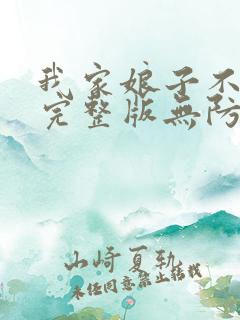 我家娘子不
完整版無防
山崎夏軌
未经同意禁止转载